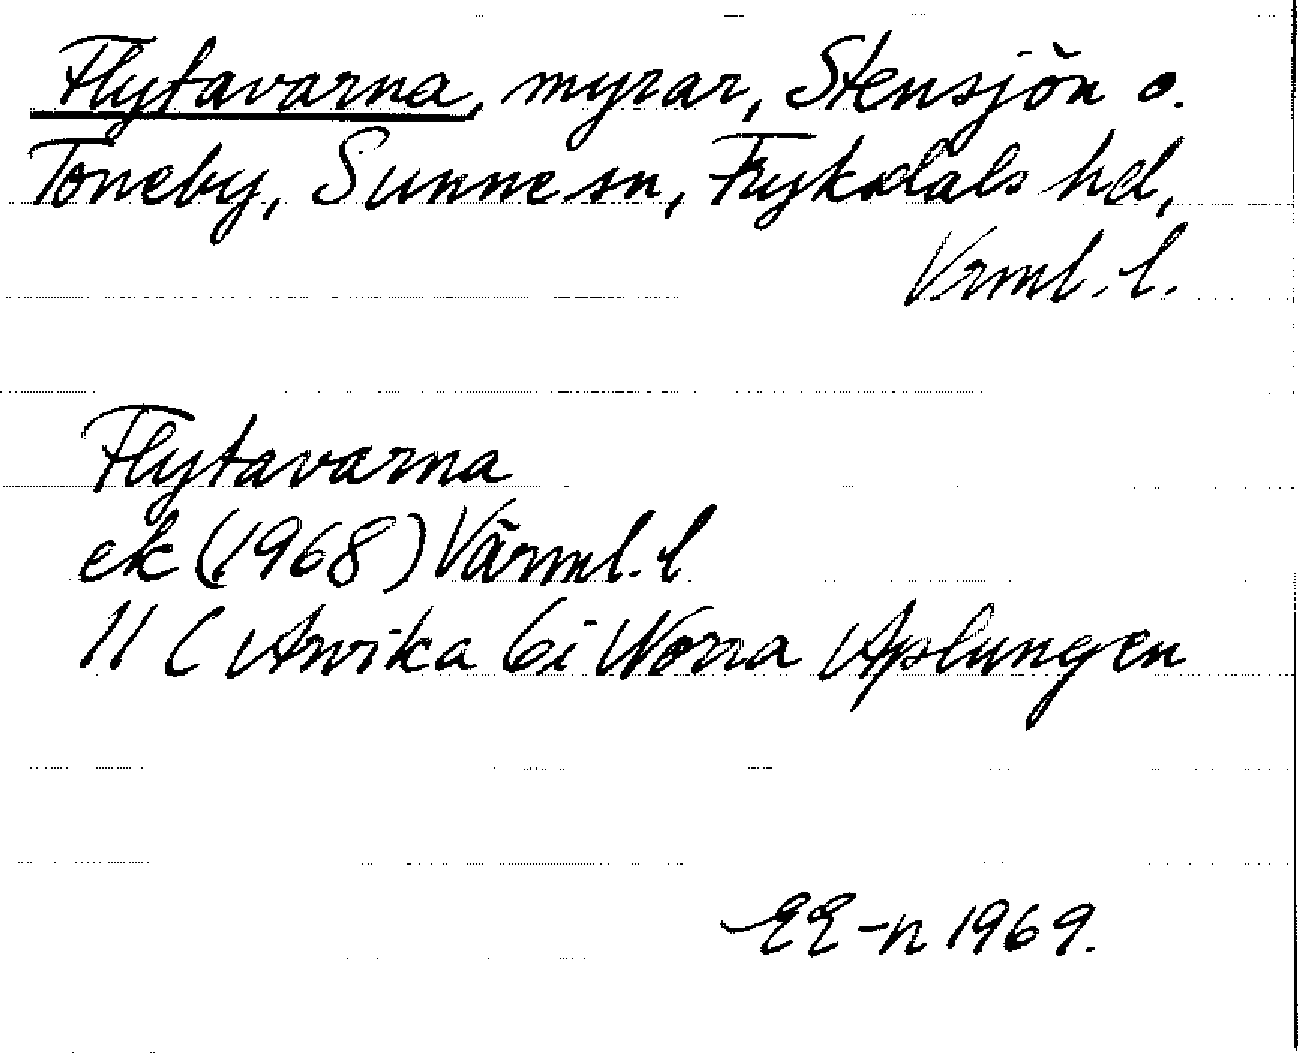 Flytavarna, myrar, Stensjön o.
Torneby, Sunne sn, Fryksdals hd,
Vrml. l.
Flytavarna
ek (1968) Värml. l
11 C Arvika 6i Norra Aplungen
EE-n 1969.